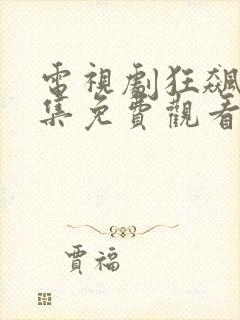 電視劇狂飆
集免費觀看
賈福